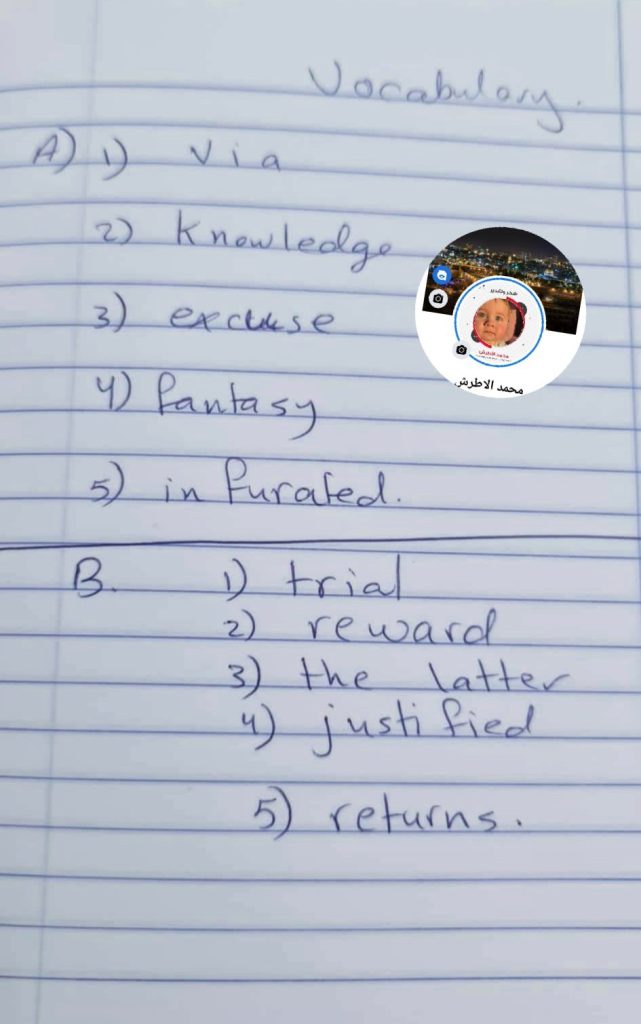 Vocabulary.
A) 1) Via
2) Knowledge
3) excuse
محمد الاطرش
4) fantasy
5) infurated.
B. 1) trial
2) reward
3) the latter
4) justified
5) returns.